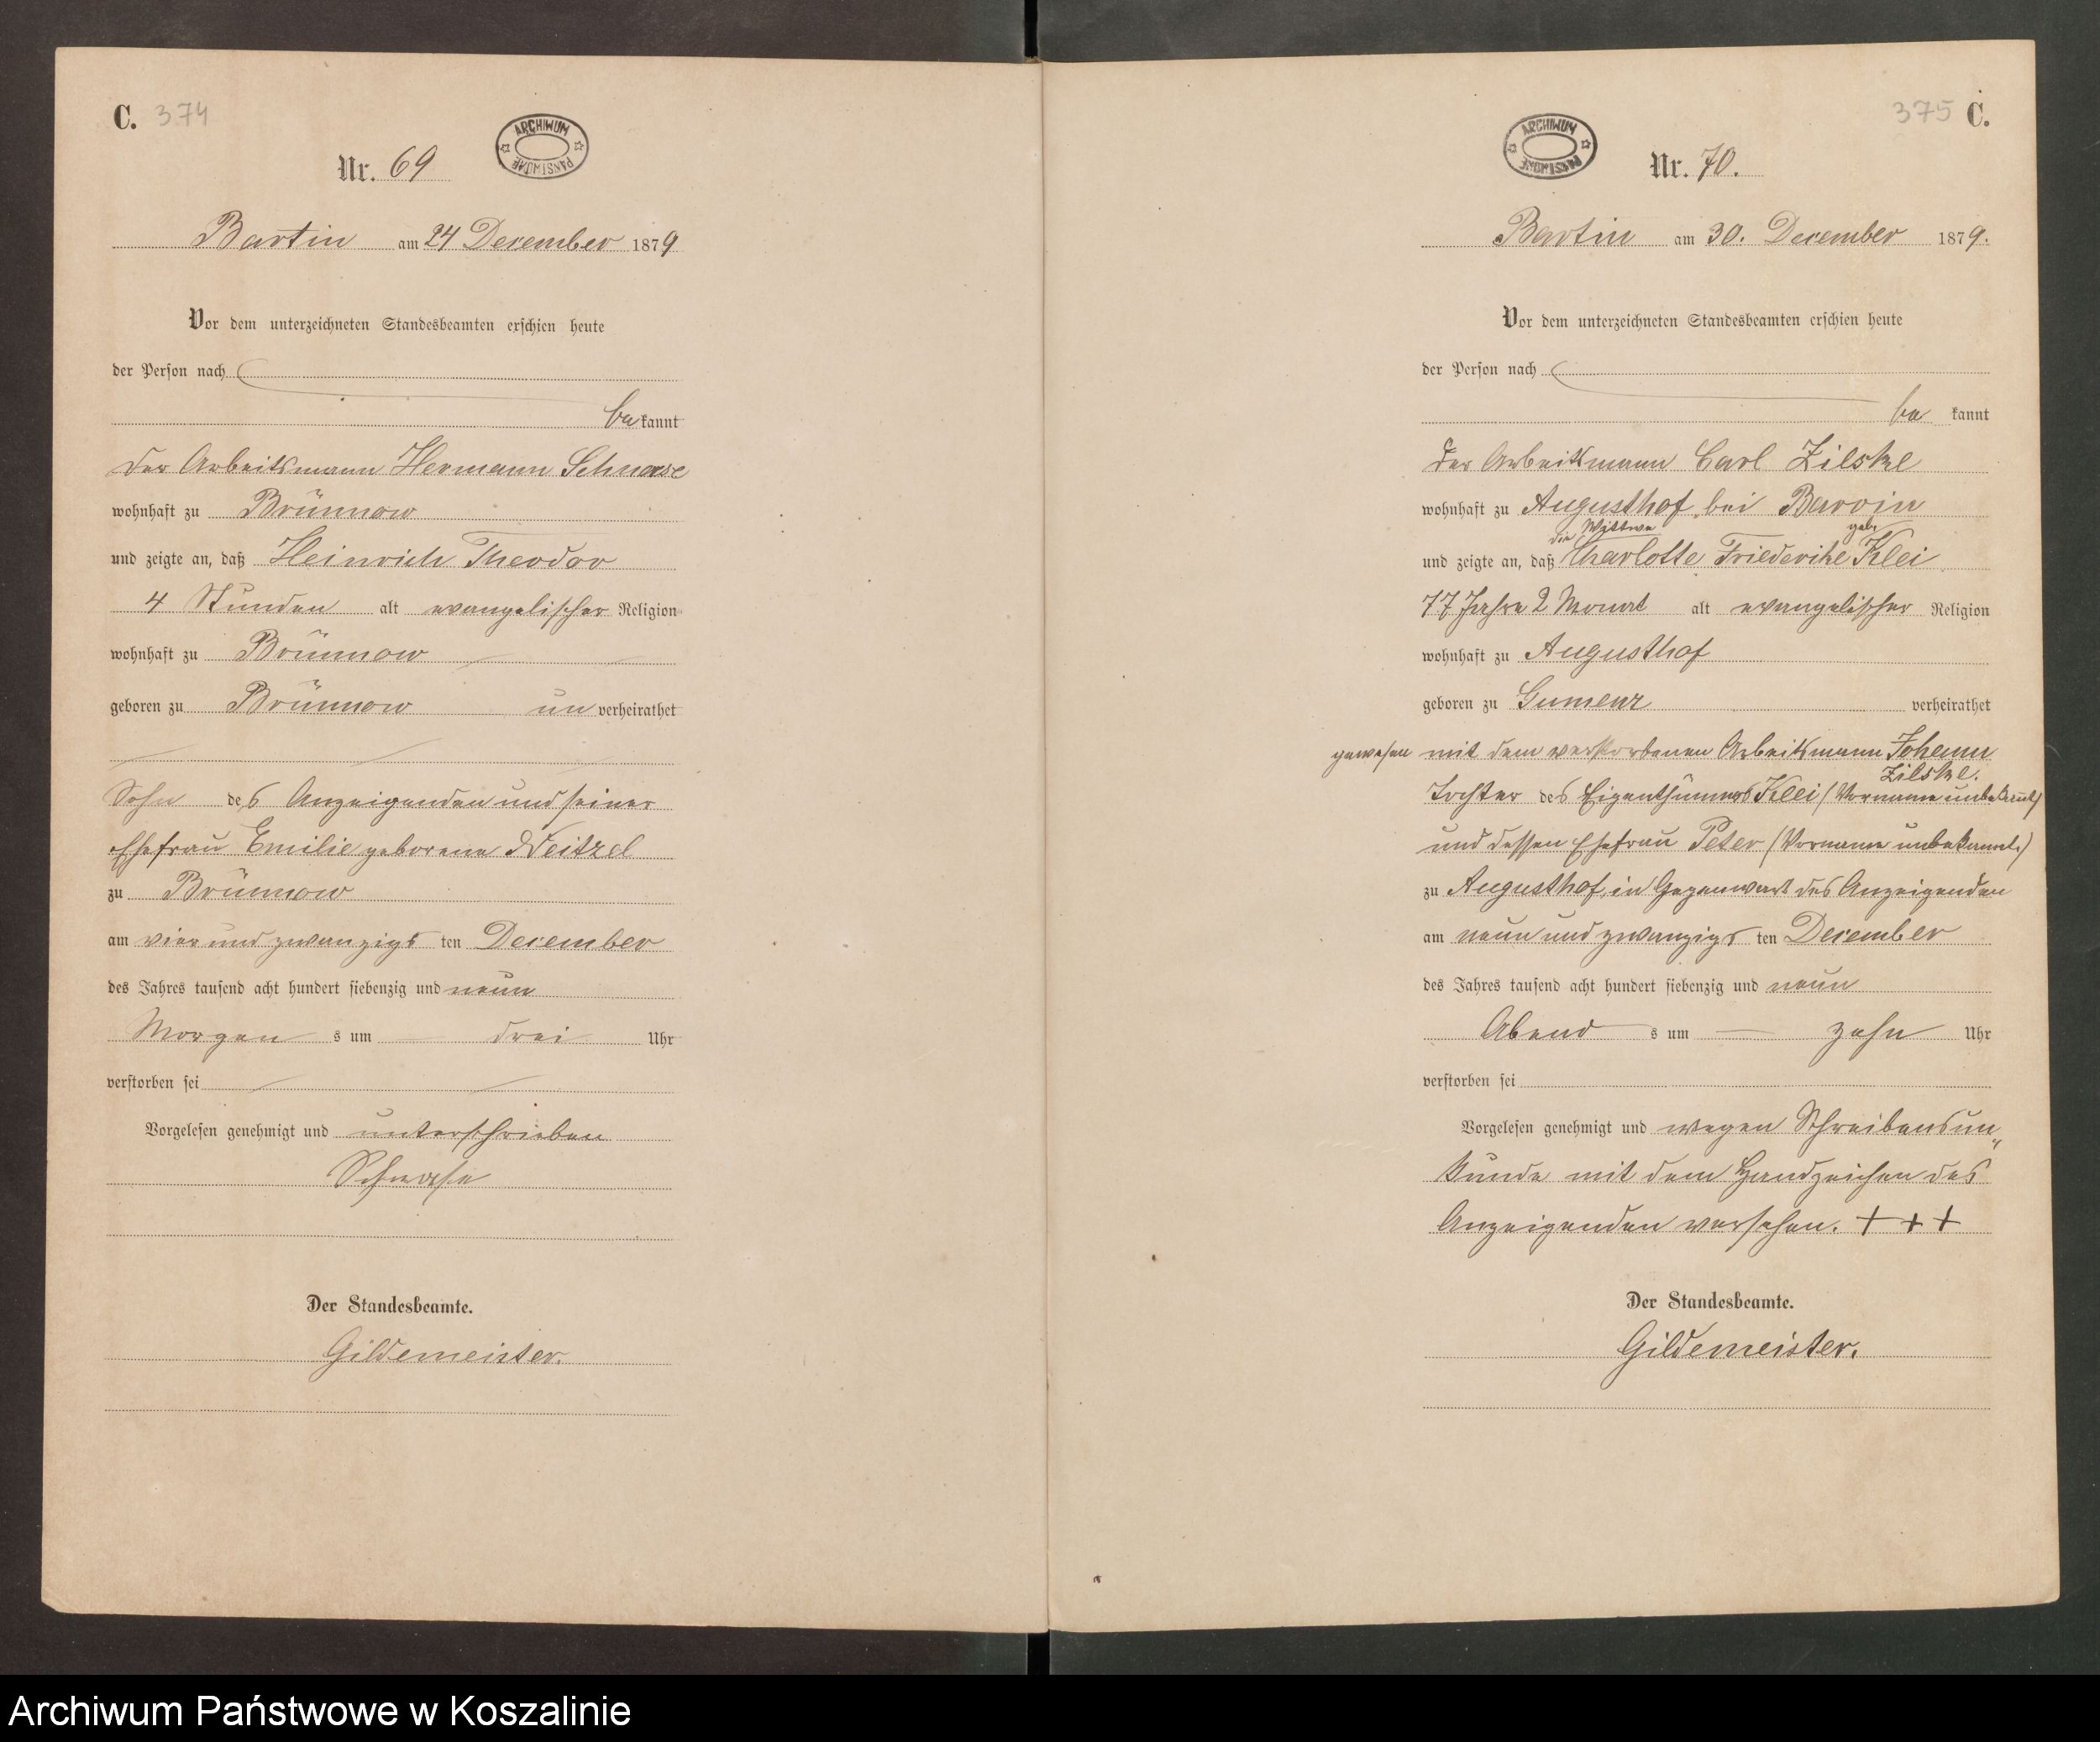 C. 374
ARCHIWUM PAŃSTWOWE
Nr. 69
Bartin am 24 December 1879
Vor dem unterzeichneten Standesbeamten erschien heute
der Person nach
bekannt
der Arbeitsmann Hermann Schnase
wohnhaft zu Brünnow
und zeigte an, daß Heinrich Theodor
4 Stunden alt evangelischer Religion
wohnhaft zu Brünnow
geboren zu Brünnow unverheirathet
Sohn des Anzeigenden und seiner
Ehefrau Emilie geborene Weitzel
zu Brünnow
am vier und zwanzigsten December
des Jahres tausend acht hundert siebenzig und neun
Morgens um drei Uhr
verstorben sei
Vorgelesen genehmigt und unterschrieben
Schnase
Der Standesbeamte.
Gildemeister.
375 C.
ARCHIWUM PAŃSTWOWE
Nr. 70.
Bartin am 30. December 1879.
Vor dem unterzeichneten Standesbeamten erschien heute
der Person nach
bekannt
der Arbeitsmann Carl Zilske
wohnhaft zu Augusthof bei Barvin
die Wittwe geb.
und zeigte an, daß Charlotte Friederike Klei
77 Jahre 2 Monat alt evangelischer Religion
wohnhaft zu Augusthof
geboren zu Gumenz verheirathet
gewesen mit dem verstorbenen Arbeitsmann Johann
Zilske.
Tochter des Eigenthümers Klei (Vorname unbekannt)
und dessen Ehefrau Peter (Vorname unbekannt.)
zu Augusthof, in Gegenwart des Anzeigenden
am neun und zwanzigsten December
des Jahres tausend acht hundert siebenzig und neun
Abends um zehn Uhr
verstorben sei
Vorgelesen genehmigt und wegen Schreibensun„
kunde mit dem Handzeichen des
Anzeigenden versehen. + + +
Der Standesbeamte.
Gildemeister.
Archiwum Państwowe w Koszalinie